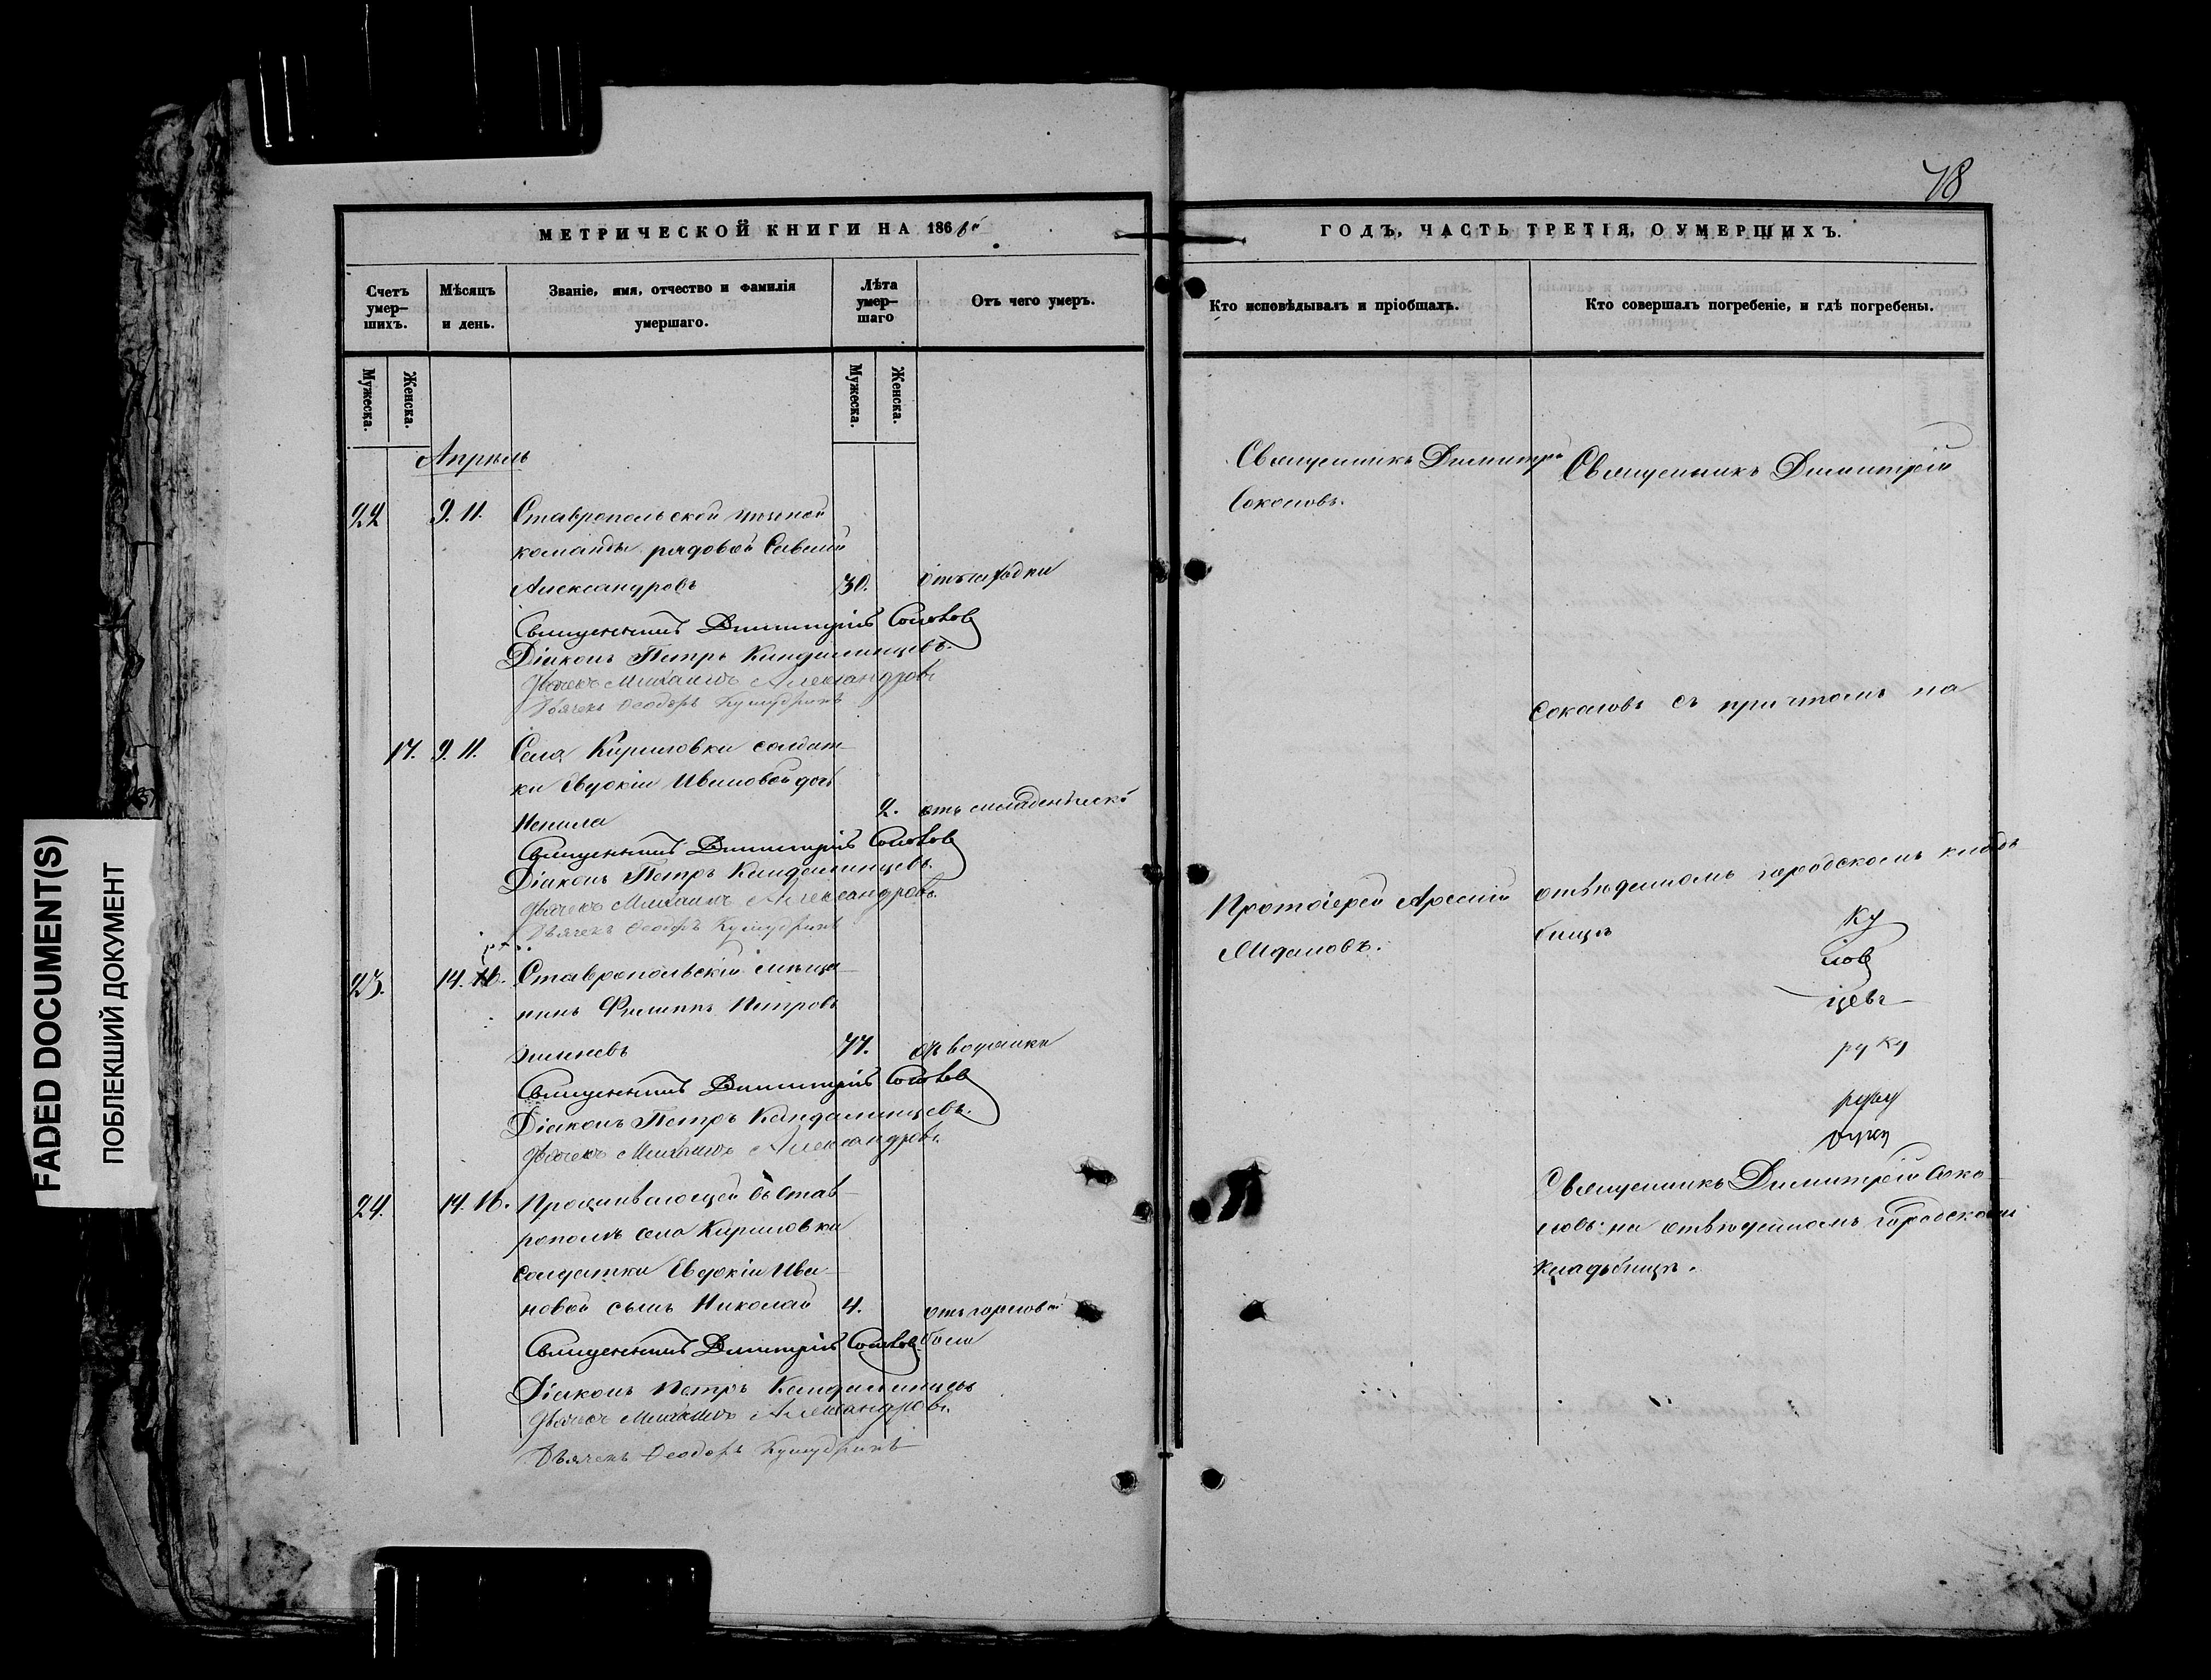 FADED DOCUMENT(S)
ПОБЛЕКШИЙ ДОКУМЕНТ
МЕТРИЧЕСКОЙ КНИГИ НА 1866й
Счетъ умер-шихъ.
Мужеска.
Женска.
Мѣсяцъ и день.
Званіе, имя, отчество и фамилія умершаго.
Лѣта умер-шаго
Мужеска.
Женска.
Отъ чего умеръ.
Апрѣль
22 9. 11. Ставропольской
команды рядовой
Александровъ 30.
Священникъ Димитрій Соколовъ
Діаконъ Петръ Кандалинцевъ.
Дьячекъ Михаилъ Александровъ.
Дьячекъ Ѳеодоръ
17. 9. 11. Села Кириловки солдат-
ки Евдокіи Ивановой дочь
2. отъ младенческ
Священникъ Димитрій Соколовъ
Діаконъ Петръ Кандалинцевъ.
Дьячекъ Михаилъ Александровъ.
Дьячекъ Ѳеодоръ
23. 14. 16. Ставропольскій мѣща-
нинъ Филиппъ Петровъ
77. отъ водянки
Священникъ Димитрій Соколовъ
Діаконъ Петръ Кандалинцевъ.
Дьячекъ Михаилъ Александровъ.
24. 14. 16. Проживающей въ Став-
рополѣ села Кириловки
солдатки Евдокіи Ива-
новой сынъ Николай 4. отъ горловой
боли
Священникъ Димитрій Соколовъ
Діаконъ Петръ Кандалинцевъ
Дьячекъ Михаилъ Александровъ.
Дьячекъ Ѳеодоръ
78
ГОДЪ, ЧАСТЬ ТРЕТІЯ, О УМЕРШИХЪ.
Кто исповѣдывалъ и пріобщалъ.
Кто совершалъ погребеніе, и гдѣ погребены.
Священникъ Димитрій
Соколовъ.
Протоіерей Арсеній
Священникъ Димитрій
Соколовъ съ причтомъ на
отведенномъ городскомъ кладъ
бищѣ
ку
ловъ
цевъ
руку
руку
руку
Священникъ Димитрій Соко
ловъ на отведенномъ городскомъ
кладбищѣ.